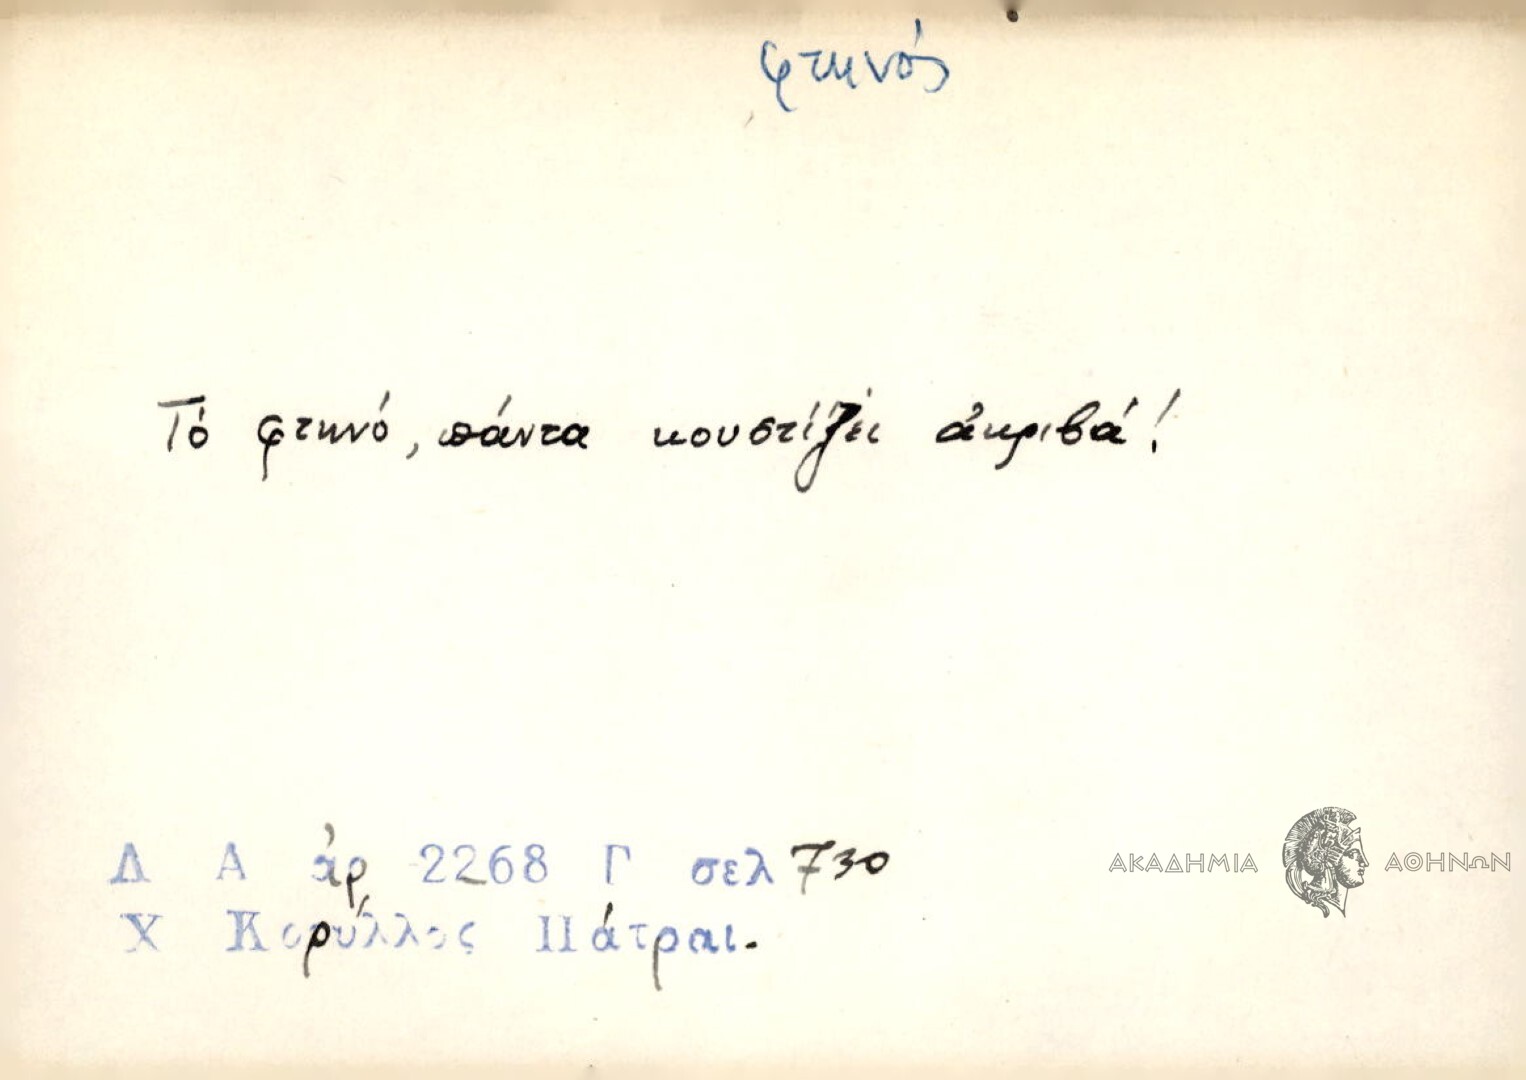 φτηνός
Τό φτηνό, πάντα κουστίζει ἀκριβά!
Λ Α ἀρ 2268 Γ σελ 730
Χ Κορύλλος Πάτραι.
ΑΚΑΔΗΜΙΑ ΑΘΗΝΩΝ